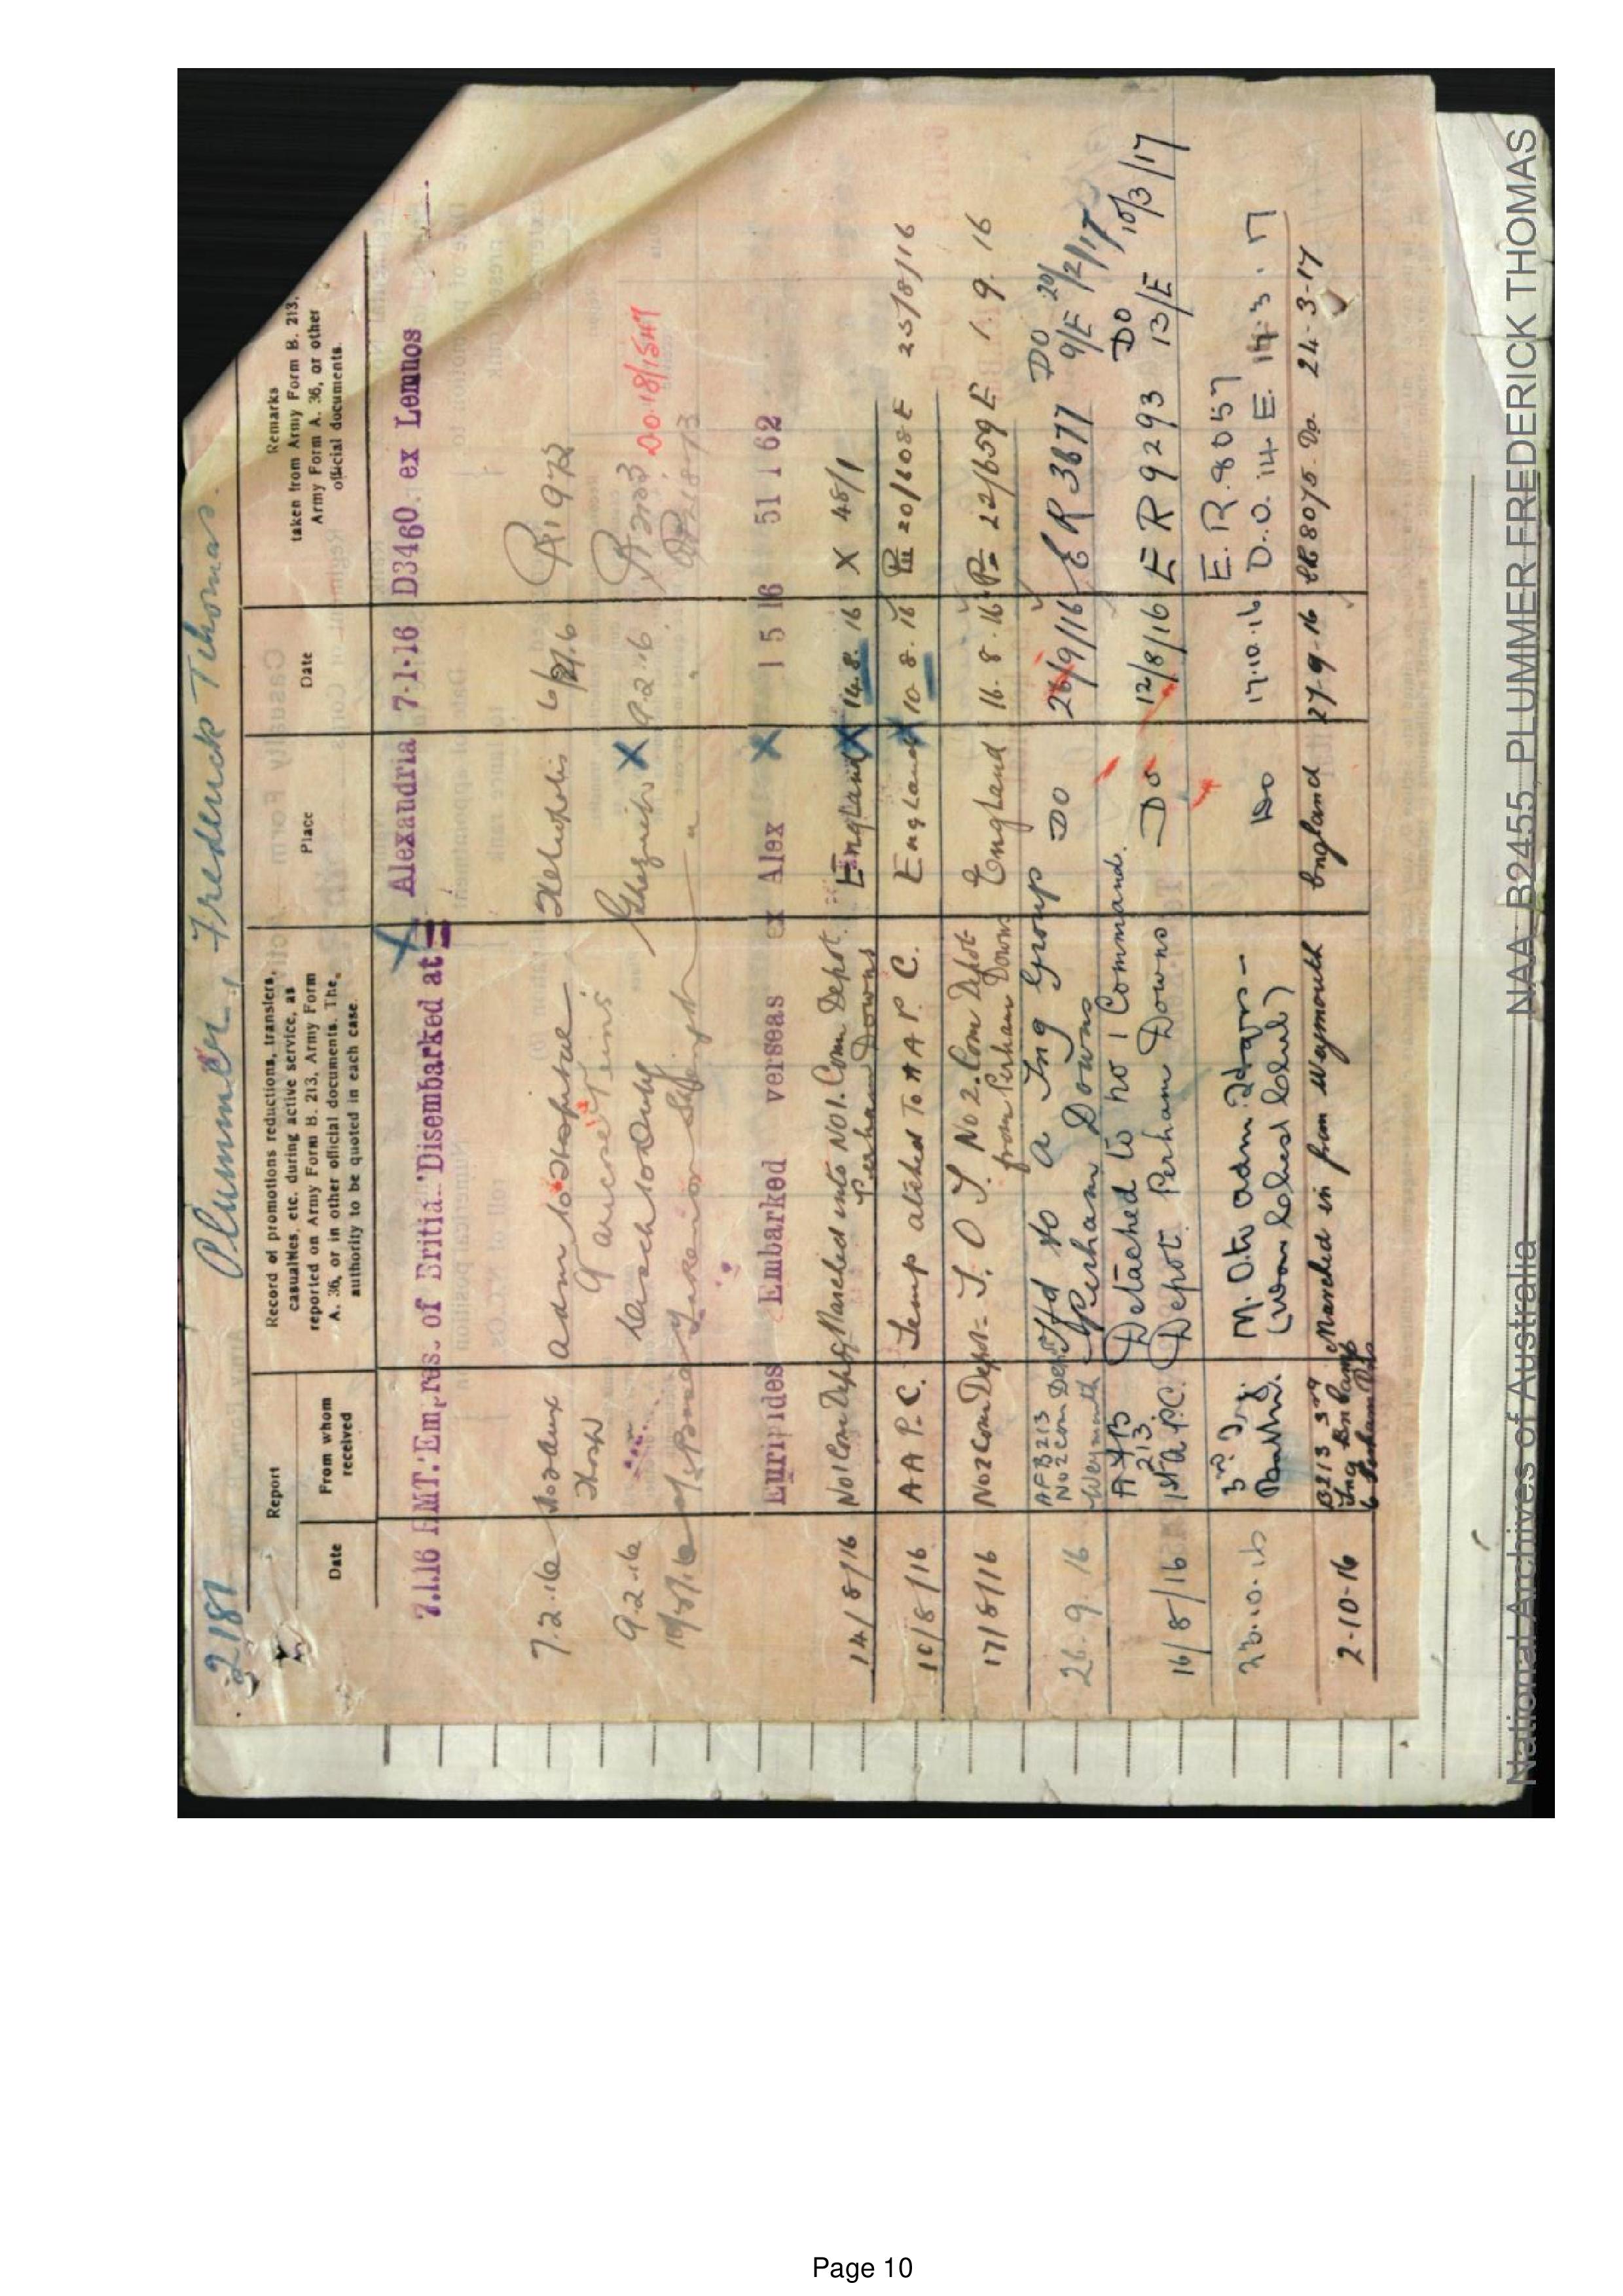 2181 Plummer, Frederick Thomas.
Report
Date
From whom received
Record of promotions reductions, transfers,
casualties, etc. during active service, as
reported on Army Form B. 213, Army Form
A. 36, or in other official documents. The
authority to be quoted in each case
Place
Date
Remarks
taken from Army Form B. 213,
Army Form A. 36, or other
official documents.
7.1.16 HMT. of Britia. Disembarked at Alexandria 7-1-16 D3460. ex Lemnos
7.2.16 Hosp Adm to Hospital Heliopolis 6/2/16
9.2.16 Duty Ghezireh 9.2.16
DO.18/1547
Euripides Embarked verseas ex Alex 1 5 16 51 1 62
14/8/16 No1 Com Depot Marched into NO1. Com Depot England 14.8.16 X 48/1
Perham Downs
10/8/16 A A P. C. Temp attched To A A P. C. England 10.8.16 20/608E 25/8/16
17/8/16 No2 Com Depot T. O S. No 2. Com Depot England 16.8.16 22/659E 1.9.16
from Perham Downs
26.9.16 AFB213 No2 Com Depot Weymouth Tfd to a Tng Group DO 26/9/16 ER 3677 DO 20/
Perham Downs 9/E 2/17
16/8/16 AFB 213 1st A P.C. Detached to no 1 Command. Do 12/8/16 ER 9293 DO 13/E 10/3/17
Depot. Perham Downs
23.10.16 M. O. to adm Do 17.10.16 E.R. 8057
D.O. 14 E. 14.3.17
2-10-16 B213 Tng Bn Marched in from Weymouth England 27-9-16 8075 Do. 24-3-17
National Archives of Australia
NAA: B2455, PLUMMER FREDERICK THOMAS
Page 10